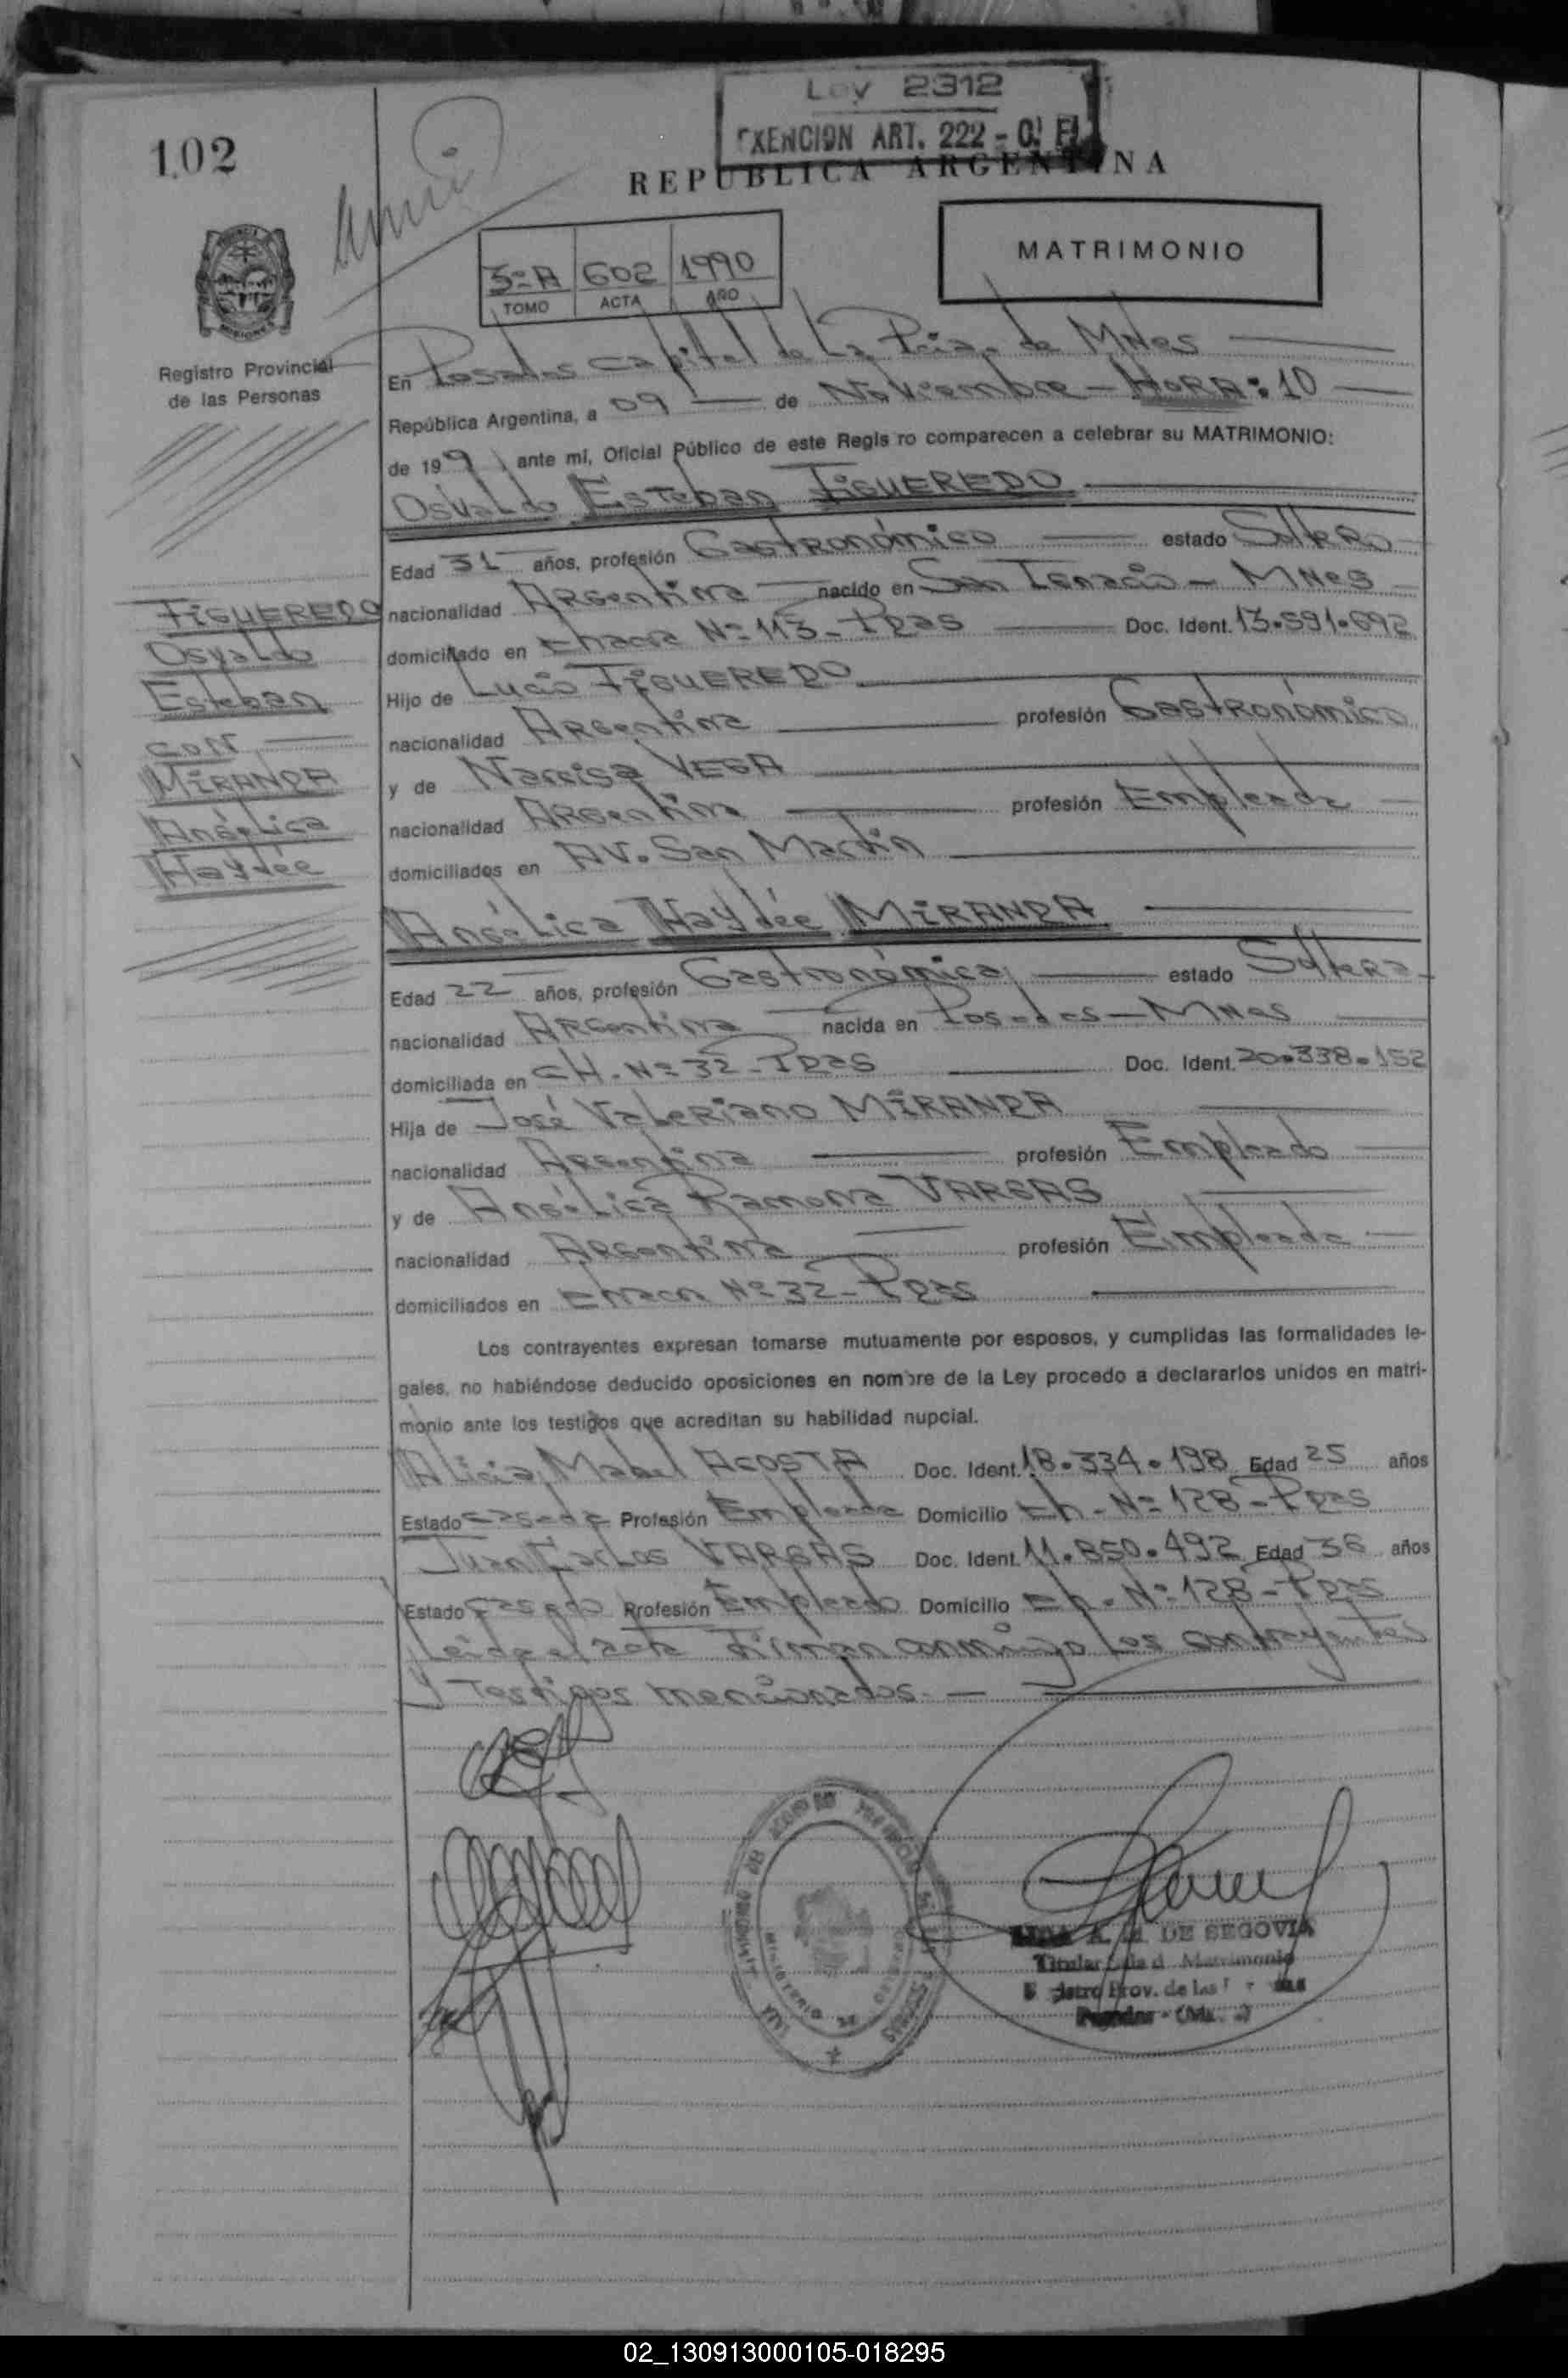 Ley 2312
EXENCION ART. 222 - C. F.
102
REPUBLICA ARGENTINA
MATRIMONIO
3º A 602 1990
TOMO ACTA AÑO
Registro Provincial
de las Personas
En Posadas Capital de La Pcia. de Mnes
República Argentina, a 09 de Noviembre - HORA: 10
de 199 , ante mí, Oficial Público de este Regis ro comparecen a celebrar su MATRIMONIO:
Osvaldo Esteban FIGUEREDO
Edad 31 años, profesión Gastronómico estado Soltero
nacionalidad Argentina nacido en San Ignacio - Mnes
domiciliado en Chacra Nº 113 - Pdas Doc. Ident. 13.591.692
Hijo de Lucio FIGUEREDO
nacionalidad Argentina profesión Gastronómico
y de Narcisa VEGA
nacionalidad Argentina profesión Empleada
domiciliados en Av. San Martín
FIGUEREDO
Osvaldo
Esteban
con
MIRANDA
Angélica
Haydée
Angélica Haydée MIRANDA
Edad 22 años, profesión Gastronómica estado Soltera
nacionalidad Argentina nacida en Posadas - Mnes
domiciliada en CH. Nº 32 - Pdas Doc. Ident. 20.338.152
Hija de José Valeriano MIRANDA
nacionalidad Argentina profesión Empleado
y de Angélica Ramona VARGAS
nacionalidad Argentina profesión Empleada
domiciliados en Chacra Nº 32 - Pdas
Los contrayentes expresan tomarse mutuamente por esposos, y cumplidas las formalidades le-
gales, no habiéndose deducido oposiciones en nombre de la Ley procedo a declararlos unidos en matri-
monio ante los testigos que acreditan su habilidad nupcial.
Alicia Mabel ACOSTA Doc. Ident. 18.334.198 Edad 25 años
Estado casada Profesión Empleada Domicilio Ch. Nº 128 - Pdas
Juan Carlos VARGAS Doc. Ident. 11.850.492 Edad 36 años
Estado casado Profesión Empleado Domicilio Ch. Nº 128 - Pdas
Leída el acta firman conmigo los contrayentes
y testigos mencionados.
A. M. DE SEGOVIA
Titular Sala d Matrimonio
Prov. de las
Posadas - (Mn.)
02_130913000105-018295